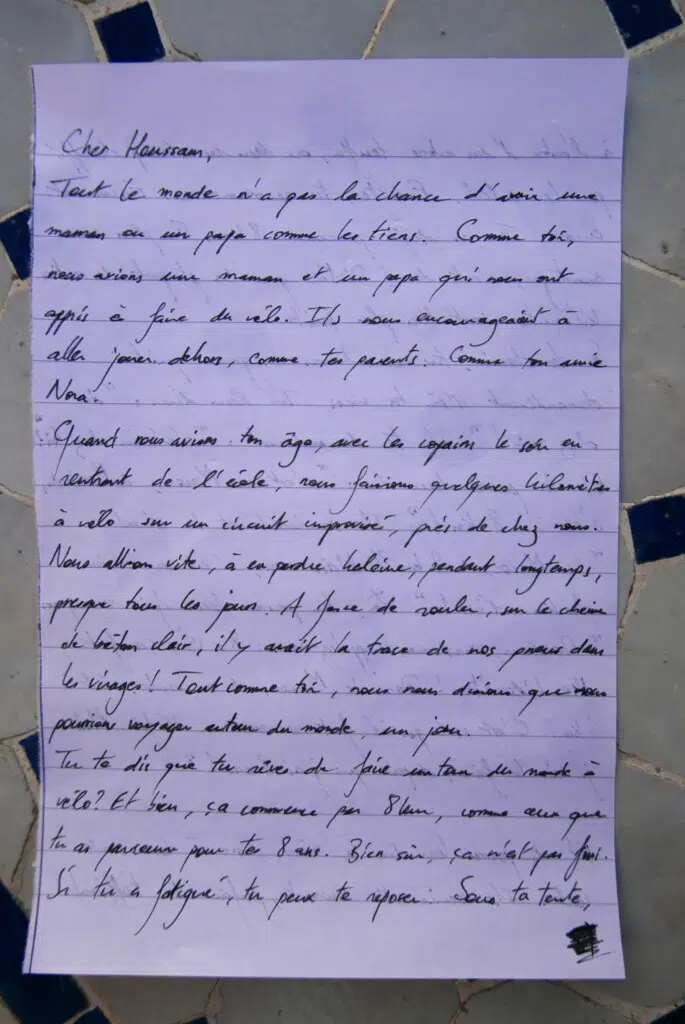 Cher Houssam,
Tout le monde n'a pas la chance d'avoir une
maman ou un papa comme les tiens. Comme toi,
nous avions une maman et un papa qui nous ont
appris à faire du vélo. Ils nous encourageaient à
aller jouer dehors, comme tes parents. Comme ton amie
Nora.
Quand nous avions ton âge, avec les copains le soir en
rentrant de l'école, nous faisions quelques kilomètres
à vélo sur un circuit improvisé, près de chez nous.
Nous allions vite, à en perdre haleine, pendant longtemps,
presque tous les jours. A force de rouler, sur le chemin
de béton clair, il y avait la trace de nos pneus dans
les virages ! Tout comme toi, nous nous disions que nous
pourrions voyager autour du monde, un jour.
Tu te dis que tu rêves de faire un tour du monde à
vélo? Et bien, ça commence par 8 km, comme ceux que
tu as parcouru pour tes 8 ans. Bien sûr, ça n'est pas fini.
Si tu es fatigué, tu peux te reposer. Sous ta tente,